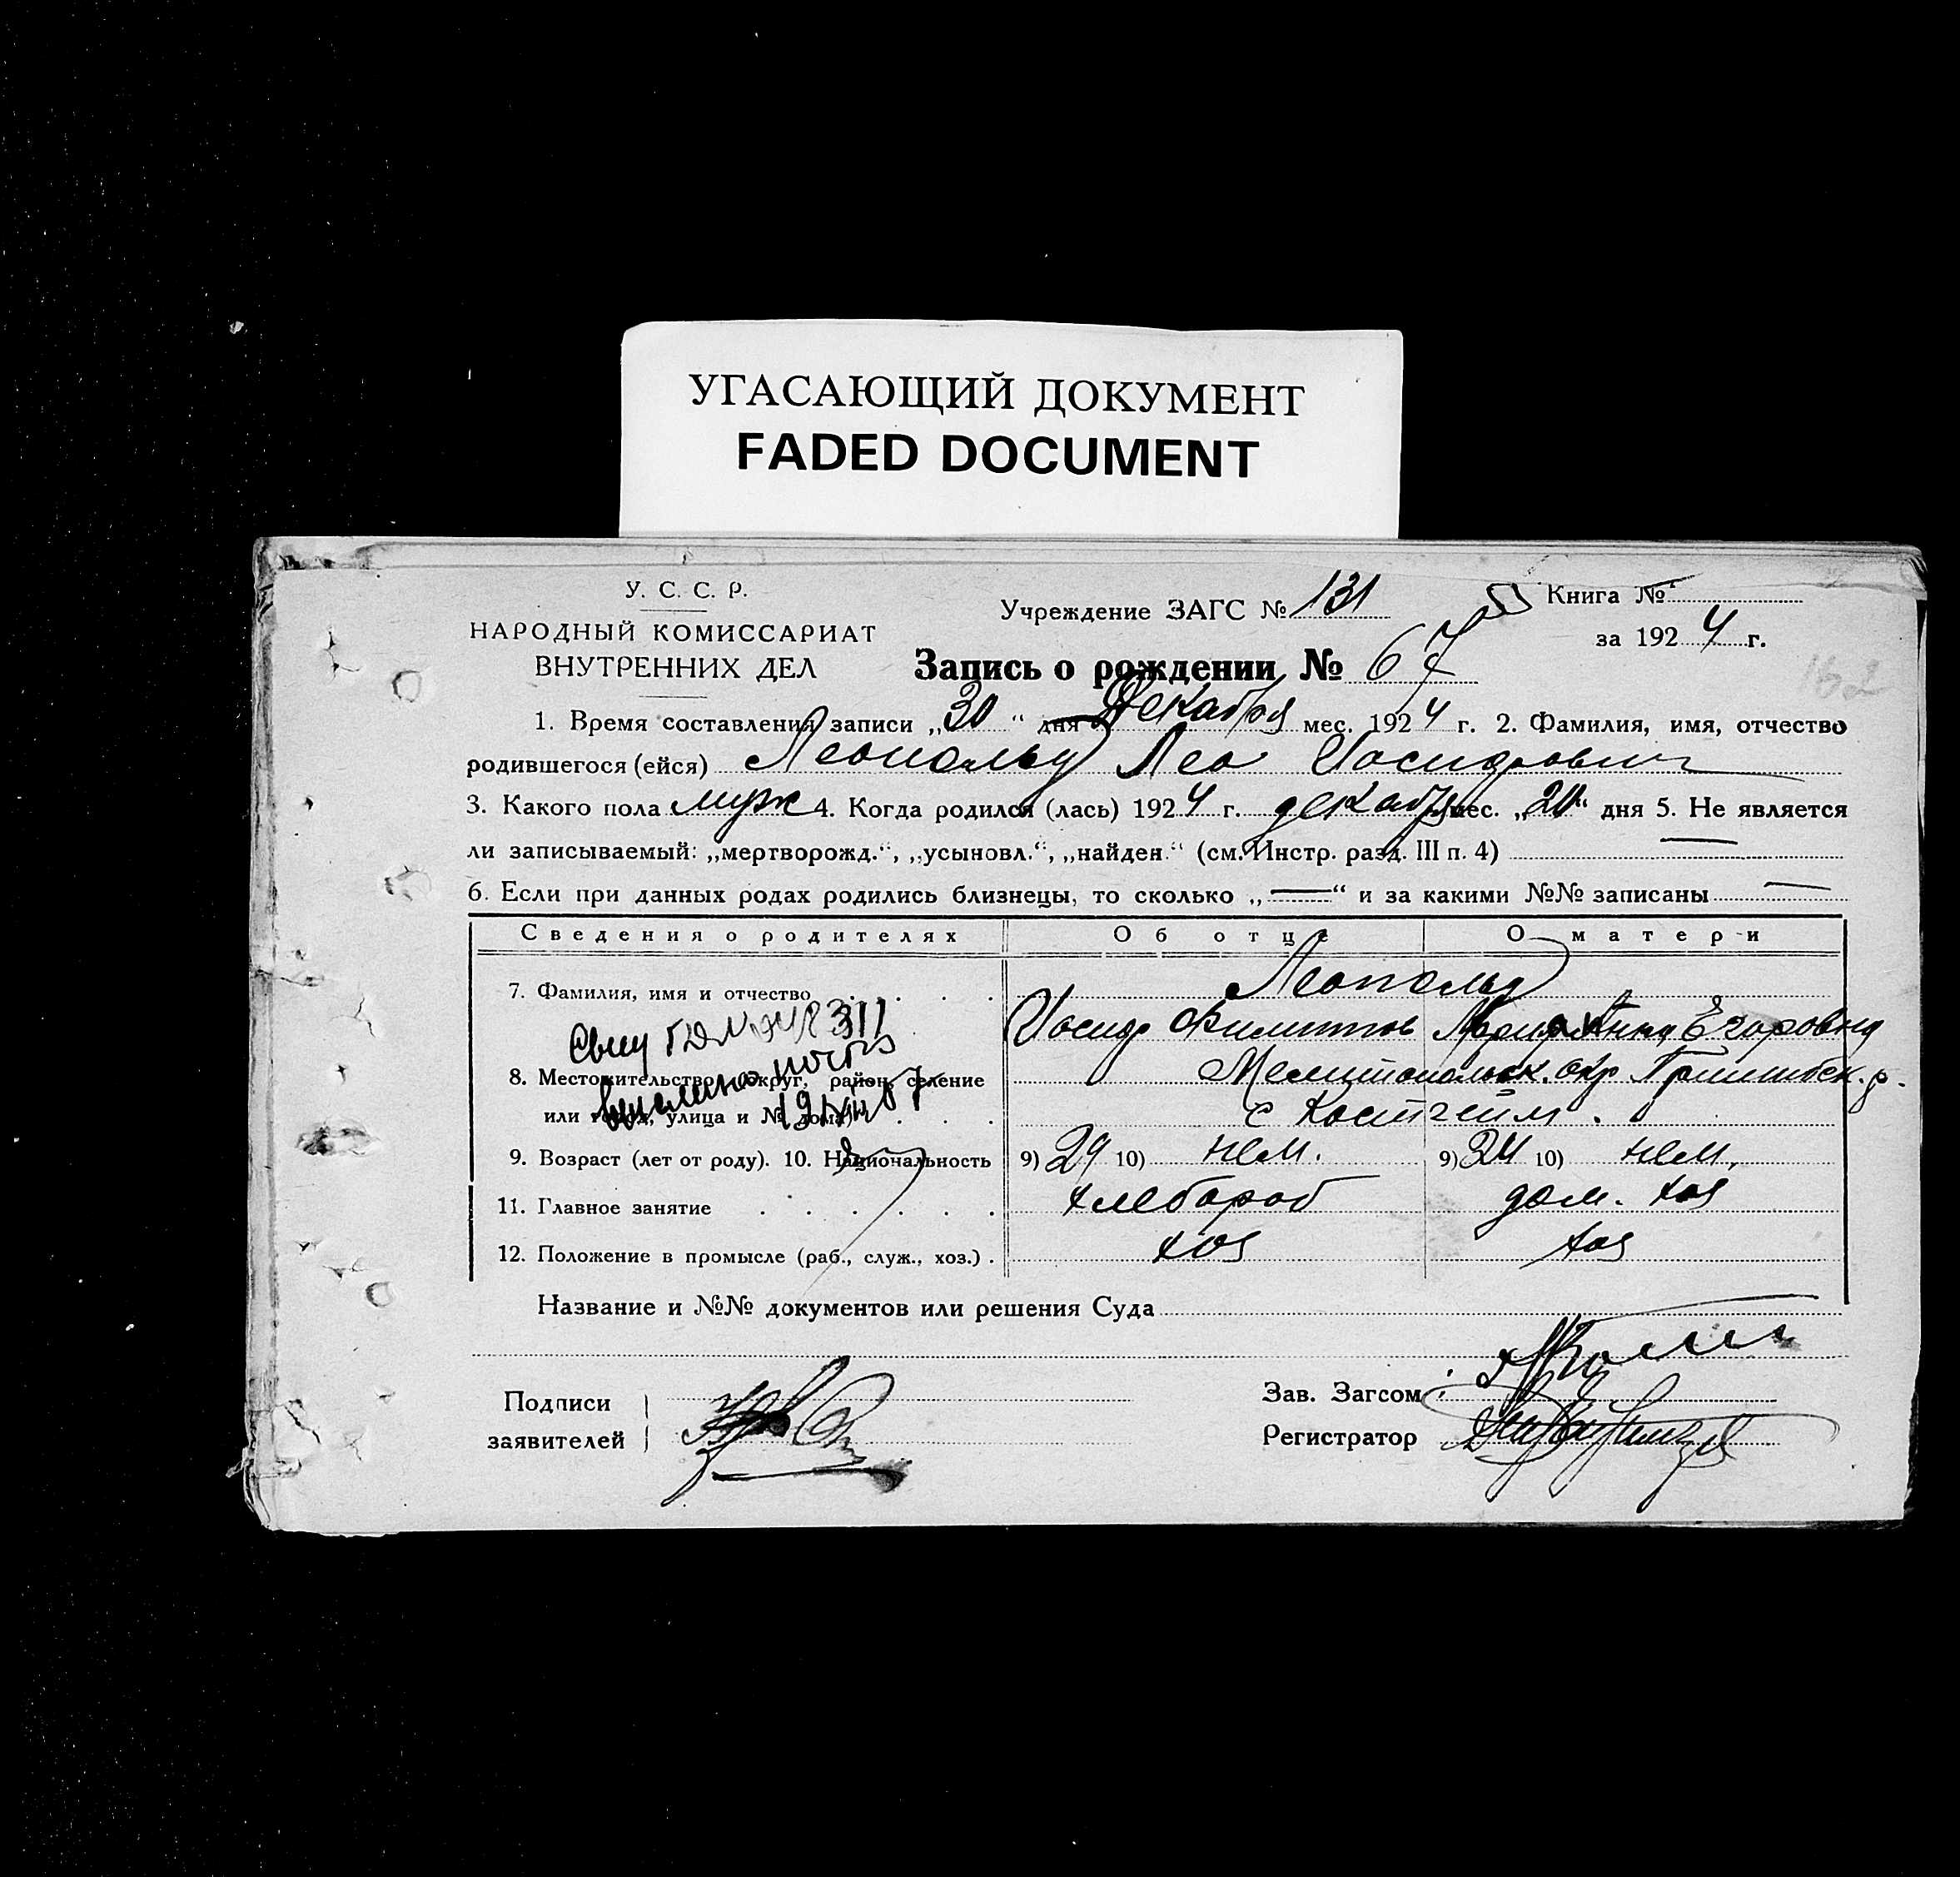 УГАСАЮЩИЙ ДОКУМЕНТ
FADED DOCUMENT
У. С. С. Р.
НАРОДНЫЙ КОМИССАРИАТ
ВНУТРЕННИХ ДЕЛ
Учреждение ЗАГС № 131
Книга №
за 1924 г.
162
Запись о рождении № 67
1. Время составления записи „30“ дня Декабря мес. 1924 г. 2. Фамилия, имя, отчество
родившегося (ейся) Леопольд Лео Иосифович
3. Какого пола муж 4. Когда родился (лась) 1924 г. декабря мес. „20“ дня 5. Не является
ли записываемый: „мертворожд.“, „усыновл.“, „найден.“ (см. Инстр. разд. III п. 4) —
6. Если при данных родах родились близнецы, то сколько „—“ и за какими №№ записаны —
Сведения о родителях Об отце О матери
7. Фамилия, имя и отчество Леопольд
Иосиф Филиппов Марианна Егоровна
8. Местожительство (округ, район, селение Мелитопольск. окр. Пришибск. р.
или город, улица и № дома) с Костгейм.
9. Возраст (лет от роду). 10. Национальность 9) 29 10) нем. 9) 24 10) нем.
11. Главное занятие хлебороб дом. хоз
12. Положение в промысле (раб., служ., хоз.) хоз хоз
Название и №№ документов или решения Суда
Подписи
заявителей
Зав. Загсом:
Регистратор